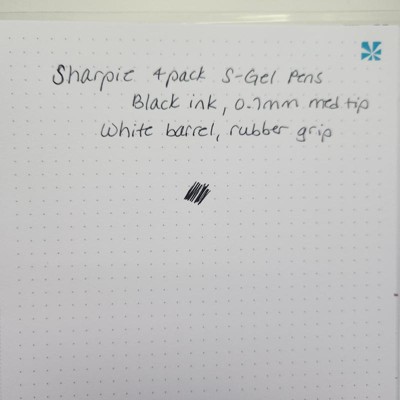 Sharpie 4pack S-Gel Pens
Black ink, 0.7mm med tip
White barrel, rubber grip